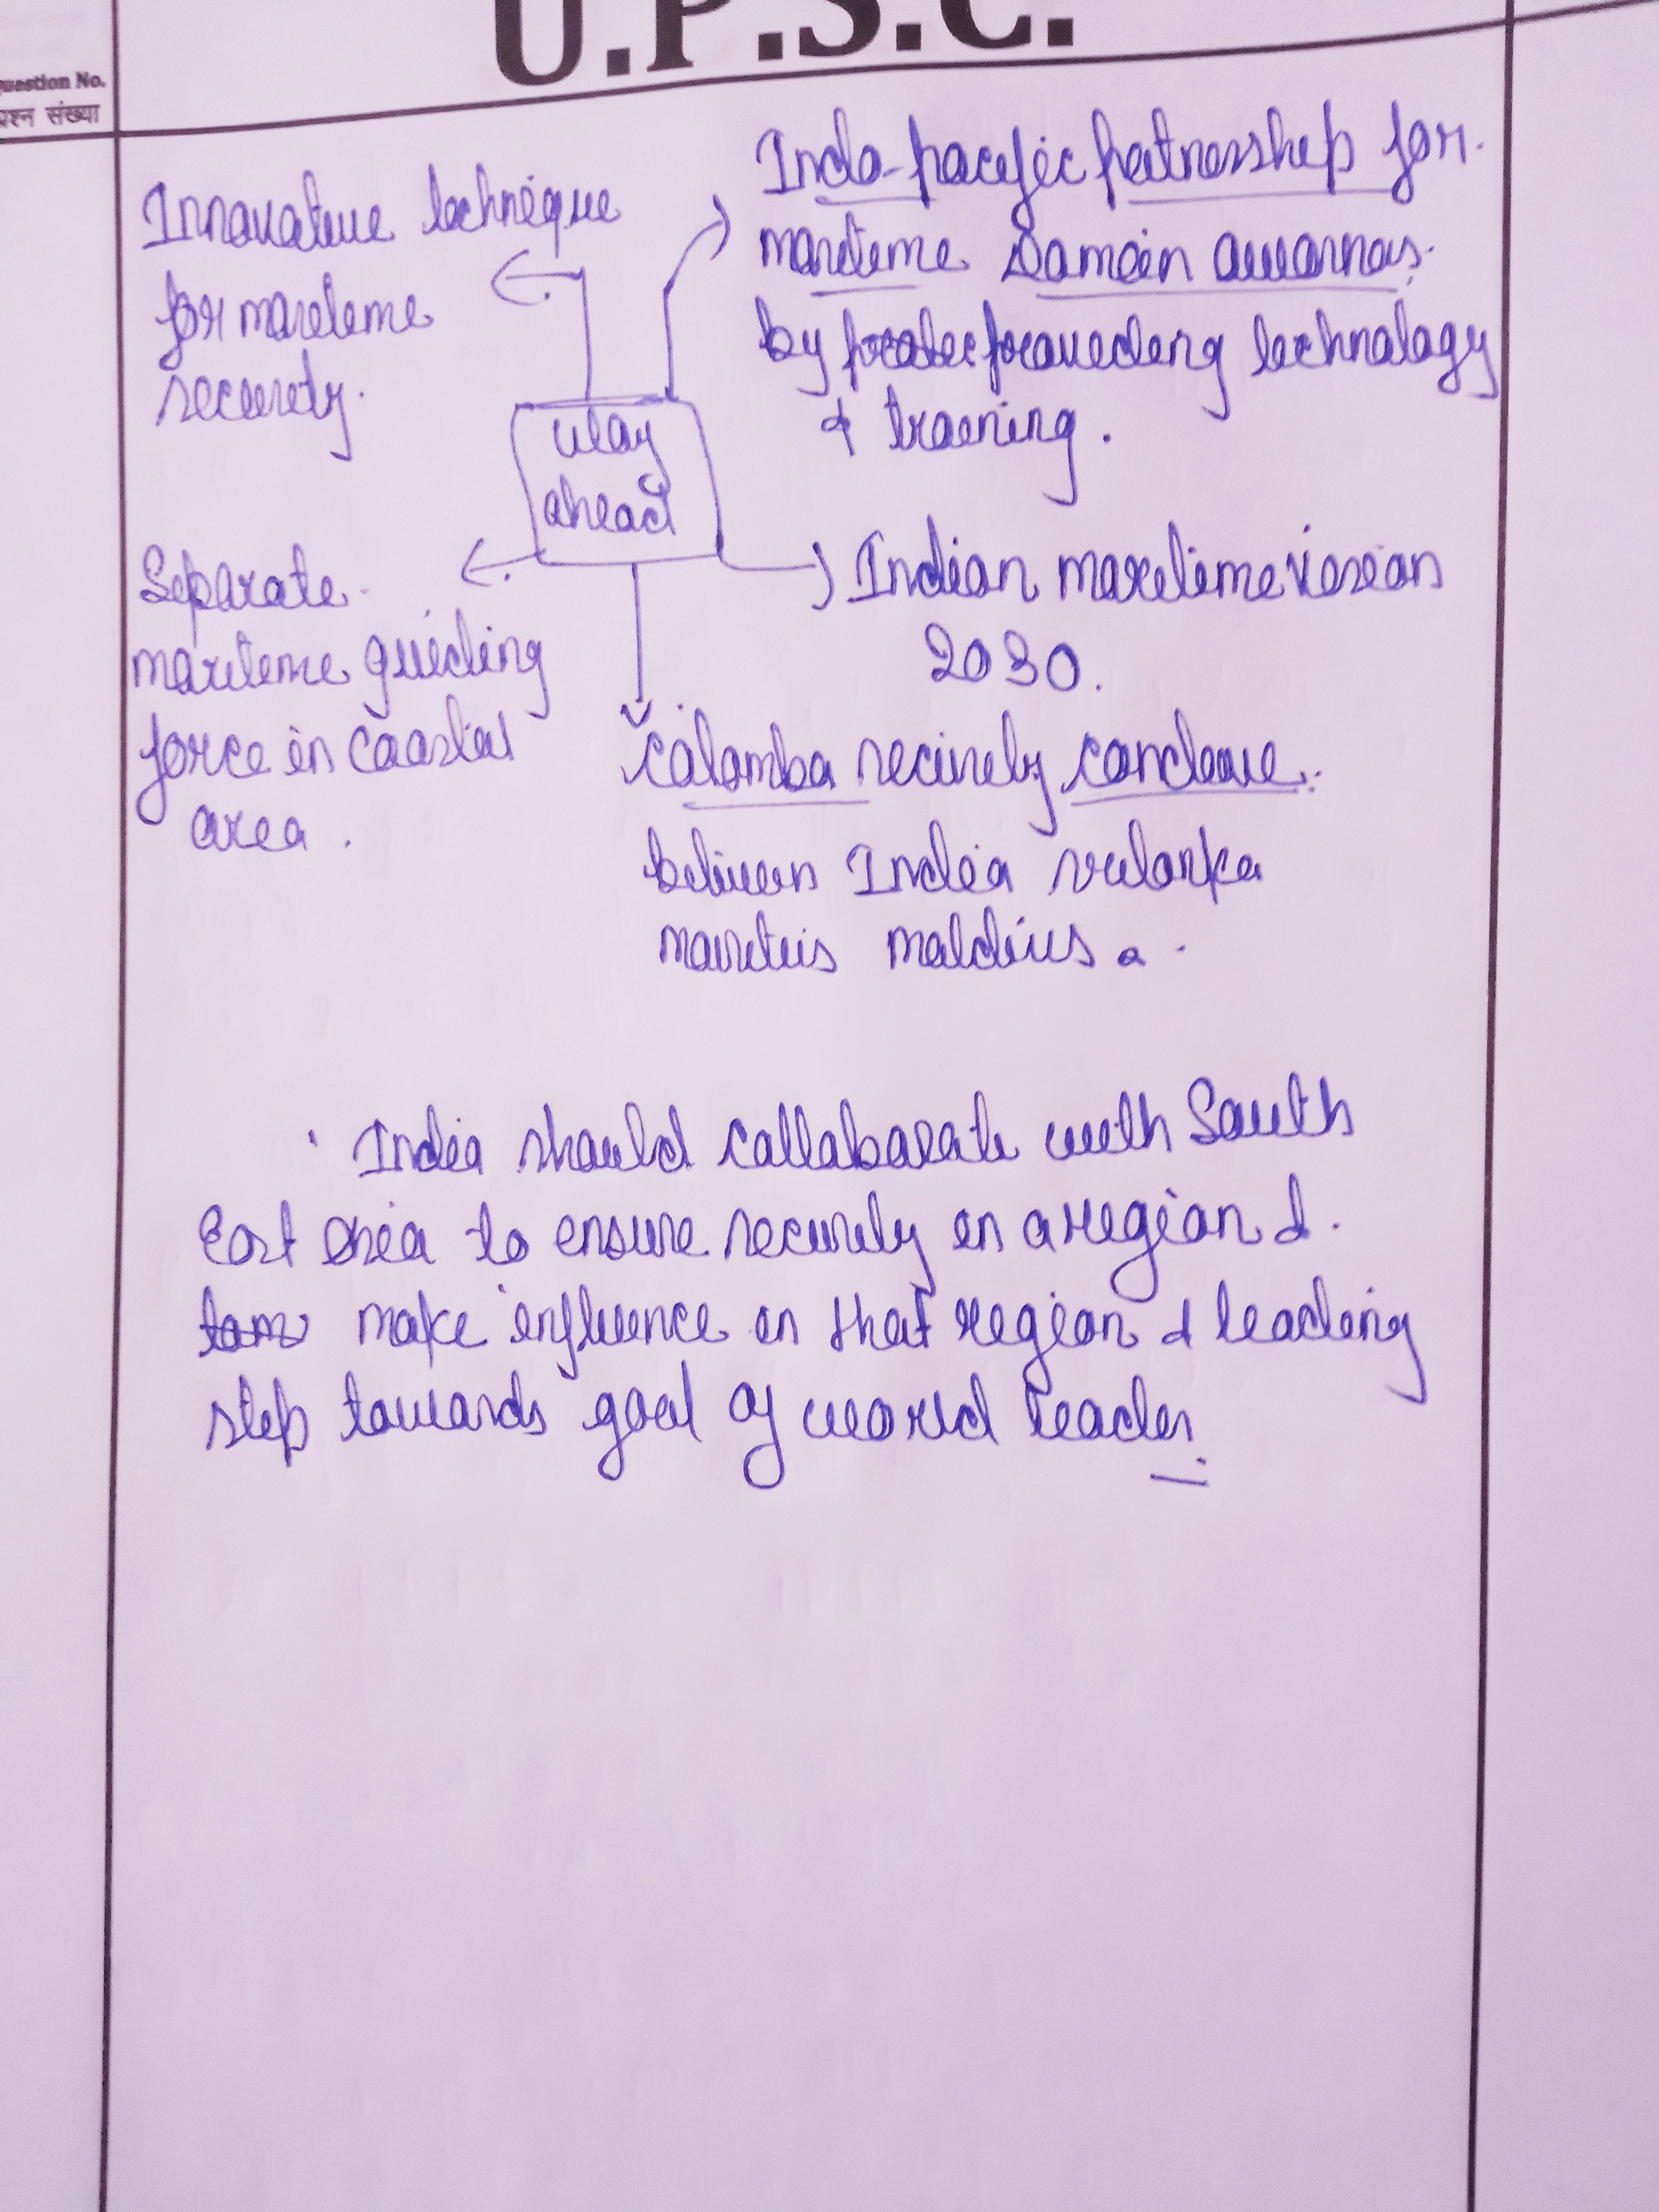 U.P.S.C.
Question No.
प्रश्न संख्या
Innovative technique
for maritime
security.
Indo-pacific partnership for
maritime Domain awarnas.
by providing technology
& training.
way
ahead
Separate
maritime guiding
force in coastal
area.
Indian maritime vision
2030.
Colombo security conclave
between India srilanka
mauritius maldives.
India should collaborate with South
East Asia to ensure security in a region &
make influence in that region & leading
step towards goal of world leader.